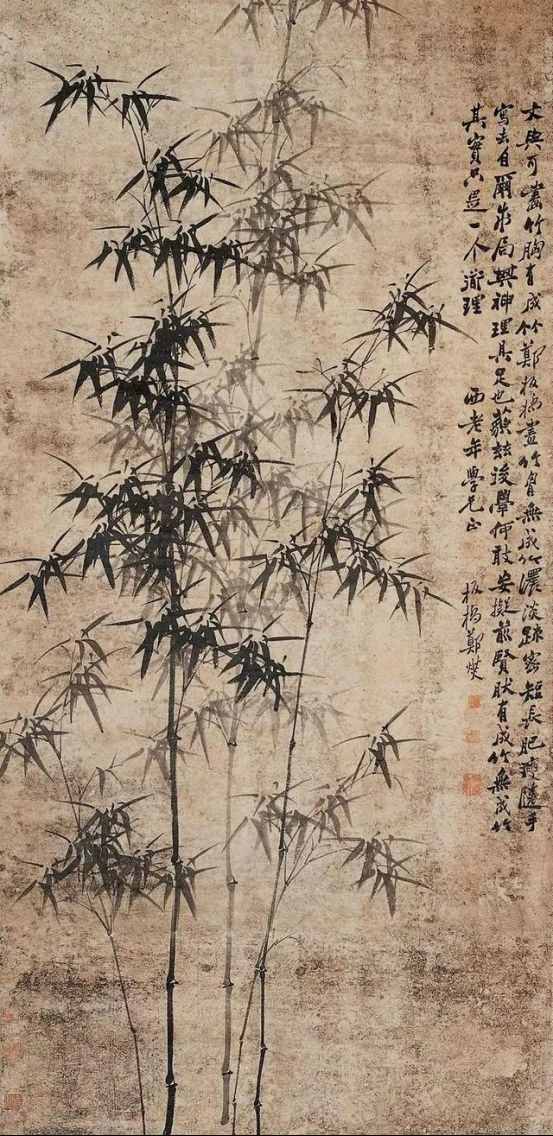 文與可畫竹胸有成竹鄭板橋畫竹胸無成竹濃淡疎密短長肥瘦隨手
寫去自爾成局其神理具足也藐兹後學何敢妄擬前賢然有成竹無成竹
其實只是一个道理 酉老年學兄正 板橋鄭燮